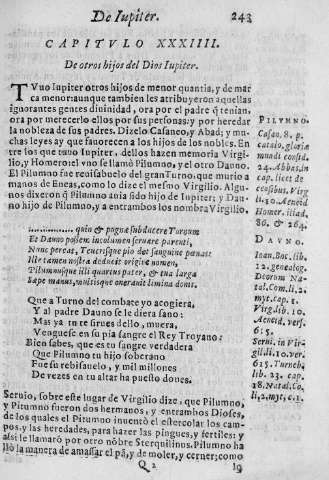 De Iupiter. 243
CAPITVLO XXXIIII.
De otros hijos del Dios Iupiter.
TVuo Iupiter otros hijos de menor quantia, y de mar
ca menor: aunque tambien les atribuyeron aquellas
ignorantes gentes diuinidad, ora por el padre q̃ tenian,
ora por merecerlo ellos por sus personas, y por heredar
la nobleza de sus padres. Dizelo Casaneo, y Abad; y mu-
chas leyes ay que fauorecen a los hijos de los nobles. En
tre los que tuuo Iupiter, dellos hazen memoria Virgi-
lio, y Homero: el vno se llamò Pilumno, y el otro Dauno.
El Pilumno fue reuisabuelo del gran Turno, que murio a
manos de Eneas, como lo dize el mesmo Virgilio. Algu-
nos dixeron q̃ Pilumno auia sido hijo de Iupiter; y Dau-
no hijo de Pilumno, y a entrambos los nombra Virgilio.
.................. quin & pugnæ subducere Turnum
Et Dauno possem incolumem seruare parenti,
Nunc pereat, Teucrisque pio det sanguine pœnas:
Ille tamen nostra deducit origine nomen,
Pilumnusque illi quartus pater, & tua larga
Sæpe manu, multisque onerauit limina donis.
Que a Turno del combate yo acogiera,
Y al padre Dauno se le diera sano:
Mas ya muera,
Venguese en su pia sangre el Rey Troyano:
Bien sabes, que es tu sangre verdadera
Que Pilumno tu hijo soberano
Fue su rebisabuelo, y mil millones
De vezes en tu altar ha puesto dones.
Seruio, sobre este lugar de Virgilio dize, que Pilumno,
y Pitumno fueron dos hermanos, y entrambos Dioses,
de los quales el Pitumno inuentò el estercolar los cam-
pos, y las heredades, para hazer las pingues, y fertiles: y
assi le llamarõ por otro nõbre Sterquilinus. Pilumno ha
llò la manera de amassar el pã, y de moler, y cerner; como
Q 2 lo
PILVMNO.
Casan. 8. p.
catalo. gloriæ
mundi consid.
24. Abbas, in
cap. licet de
censibus. Virg
li. 10. Aeneid
Homer. iliad.
80. & 264.
DAVNO.
Ioan. Boc. lib.
12. genealog.
Deorum Nat-
tal. Com. li. 2.
myt. cap. 1.
Virg. lib. 10.
Aeneid. vers.
615.
Serui. in Vir-
gil. li. 10. ver.
615. Turneb.
lib. 23. cap.
28. Natal. Co.
li, 2, myt, c 1.